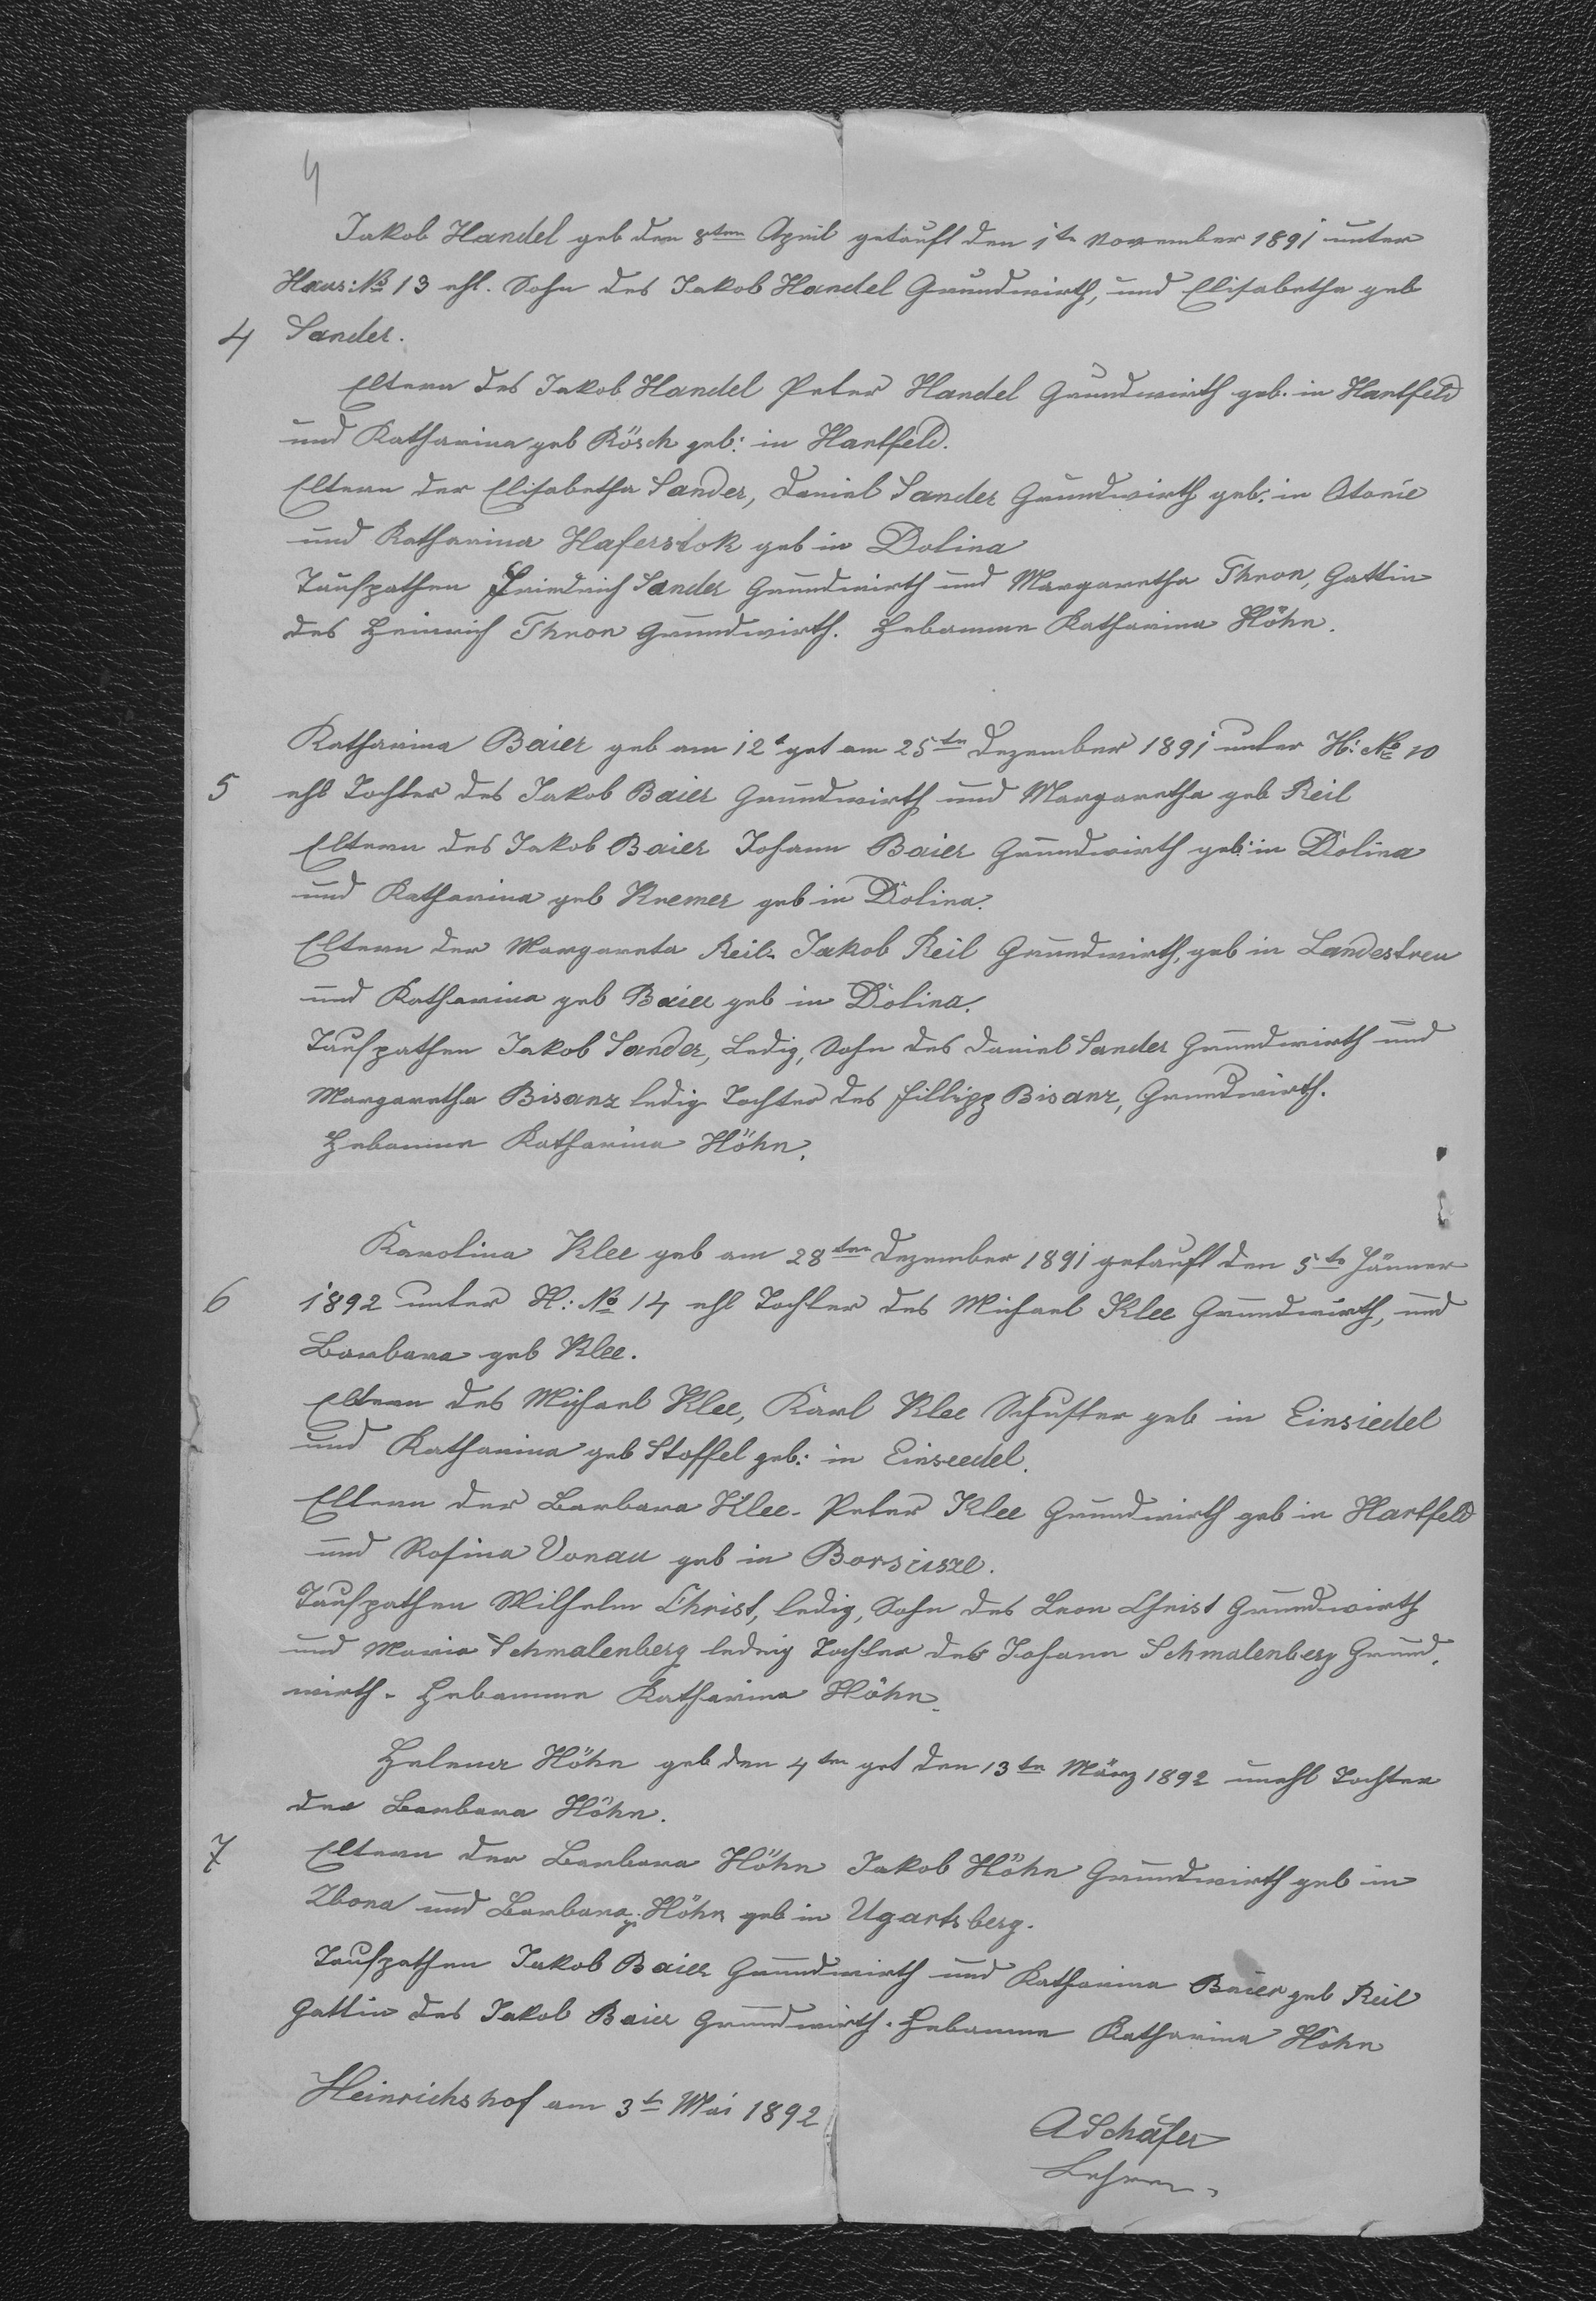 4
Jakob Handel geb den 8ten April getauft den 1te November 1891 unter
Haus: No 13 ehl. Sohn des Jakob Handel Grundwirth, und Elisabetha geb
4 Sander.
Eltern des Jakob Handel Peter Handel Grundwirth geb. in Hartfeld
und Katharina geb Rösch geb: in Hartfeld.
Eltern der Elisabetha Sander, Daniel Sander Grundwirth geb: in
und Katharina Haferstok geb in Dolina
Taufpathen Friedrich Sander Grundwirth und Margaretha Thron, Gattin
des Heinrich Thron Grundwirth. Hebamme Katharina Höhn.
Katharina Baier geb am 12t get am 25ten Dezember 1891 unter H: No 10
5 ehl Tochter des Jakob Baier Grundwirth und Margaretha geb Reil
Eltern des Jakob Baier Johann Baier Grundwirth geb: in Dolina
und Katharina geb Kremer geb in Dolina.
Eltern der Margareta Reil. Jakob Reil Grundwirth, geb in Landestreu
und Katharina geb Baier geb in Dolina.
Taufpathen Jakob Sander, Ledig, Sohn des Daniel Sander Grundwirth und
Margaretha Bisanz ledig Tochter des Fillipp Bisanz, Grundwirth.
Hebamme Katharina Höhn.
Karolina Klee geb am 28ten Dezember 1891 getauft den 5te Jänner
6 1892 unter H: No 14 ehl Tochter des Michael Klee Grundwirth, und
Barbara geb Klee.
Eltern des Michael Klee, Karl Klee Schuster geb in Einsiedel
und Katharina geb Stoffel geb: in Einseedel.
Eltern der Barbara Klee. Peter Klee Grundwirth geb in Hartfeld
und Rosina Vonau geb in
Taufpathen Wilhelm Christ, ledig, Sohn des Leon Christ Grundwirth
und Maria Schmalenberg ledig Tochter des Johann Schmalenberg Grund,
wirth. Hebamme Katharina Höhn.
Helena Höhn geb den 4ten get den 13te März 1892 unehl Tochter
der Barbara Höhn.
7 Eltern der Barbara Höhn Jakob Höhn Grundwirth geb in
und Barbara g. Höhn geb in Ugartsberg.
Taufpathen Jakob Baier Grundwirth und Katharina Baier geb Reil
Gattin des Jakob Baier Grundwirth. Hebamme Katharina Höhn
Heinrichshof am 3t Mai 1892
ASchäfer
Lehrer